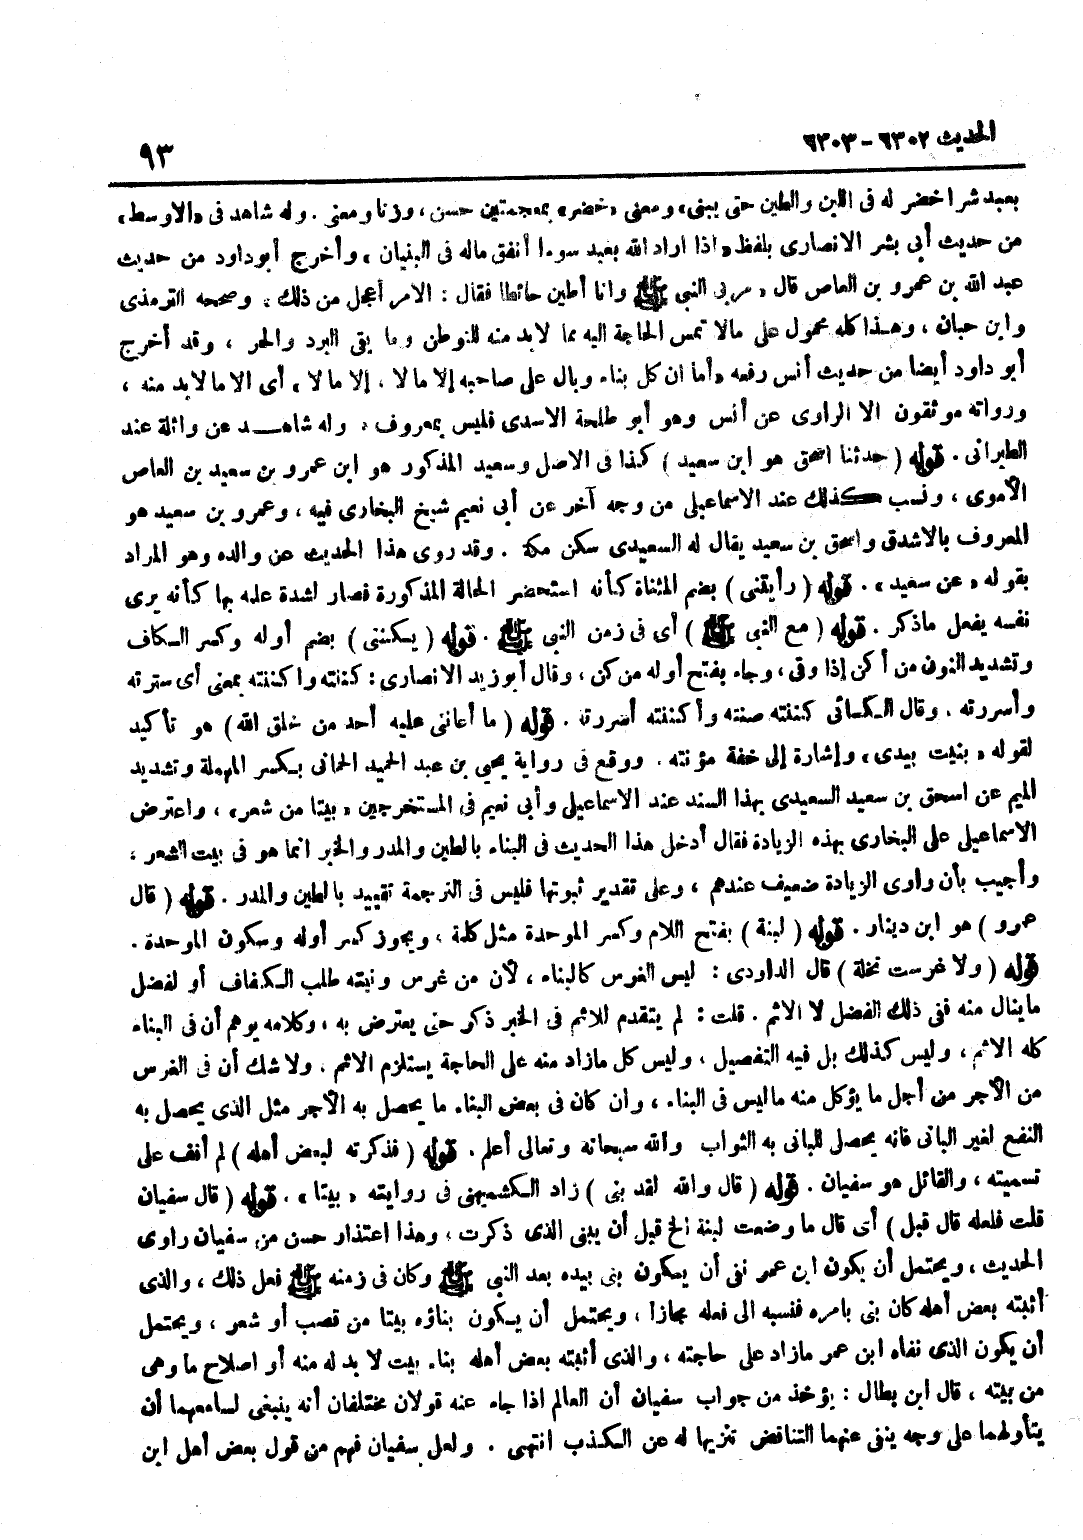 الحديث ٦٣٠٢ - ٦٣٠٣
٩٣
بعبد شرا خضر له فى اللبن والطين حتى يبنى» ومعنى «خضر» بمعجمتين حسن ، وزنا ومعنى . وله شاهد فى «الاوسط»
من حديث أبى بشر الانصارى بلفظ «اذا اراد الله بعبد سوءا أنفق ماله فى البنيان » وأخرج أبو داود من حديث
عبد الله بن عمرو بن العاص قال « مر بى النبى ﷺ وانا أطين حائطا فقال : الامر أعجل من ذلك » وصححه الترمذى
وابن حبان ، وهـذا كله محمول على مالا تمس الحاجة اليه مما لابد منه للتوطن وما يقى البرد والحر ، وقد أخرج
أبو داود أيضا من حديث أنس رفعه «أما ان كل بناء وبال على صاحبه إلا مالا ، إلا مالا » أى الا مالابد منه ،
ورواته موثقون الا الراوى عن أنس وهو أبو طلحة الاسدى فليس بمعروف . وله شاهـــد عن واثلة عند
الطبرانى . قوله ( حدثنا اسحق هو ابن سعيد ) كذا فى الاصل وسعيد المذكور هو ابن عمرو بن سعيد بن العاص
الأموى ، ونسب كذلك عند الاسماعيلى من وجه آخر عن أبى نعيم شيخ البخارى فيه ، وعمرو بن سعيد هو
المعروف بالاشدق واسحق بن سعيد يقال له السعيدى سكن مكة . وقد روى هذا الحديث عن والده وهو المراد
بقوله « عن سعيد » . قوله ( رأيتنى ) بضم المثناة كأنه استحضر الحالة المذكورة فصار لشدة علمه بها كأنه يرى
نفسه يفعل ماذكر . قوله ( مع النبى ﷺ ) أى فى زمن النبى ﷺ . قوله ( يكننى ) بضم أوله وكسر الكاف
وتشديد النون من أكن إذا وقى ، وجاء بفتح أوله من كن ، وقال أبو زيد الانصارى : كننته واكننته بمعنى أى سترته
وأسررته . وقال الكسائى كننته صنته وأكننته أسررته . قوله ( ما أعاننى عليه أحد من خلق الله ) هو تأكيد
لقوله « بنيت بيدى » وإشارة إلى خفة مؤنته . ووقع فى رواية يحيى بن عبد الحميد الحمانى بكسر المهملة وتشديد
الميم عن اسحق بن سعيد السعيدى بهذا السند عند الاسماعيلى وأبى نعيم فى المستخرجين « بيتا من شعر » ، واعترض
الاسماعيلى على البخارى بهذه الزيادة فقال أدخل هذا الحديث فى البناء بالطين والمدر والخبر انما هو فى بيت الشعر ،
وأجيب بأن راوى الزيادة ضعيف عندهم ، وعلى تقدير ثبوتها فليس فى الترجمة تقييد بالطين والمدر . قوله ( قال
عمرو ) هو ابن دينار . قوله ( لبنة ) بفتح اللام وكسر الموحدة مثل كلمة ، ويجوز كسر أوله وسكون الموحدة .
قوله ( ولا غرست نخلة ) قال الداودى : ليس الغرس كالبناء ، لأن من غرس ونيته طلب الكفاف أو لفضل
ماينال منه ففى ذلك الفضل لا الاثم . قلت : لم يتقدم للاثم فى الخبر ذكر حتى يعترض به ، وكلامه يوهم أن فى البناء
كله الاثم ، وليس كذلك بل فيه التفصيل ، وليس كل مازاد منه على الحاجة يستلزم الاثم . ولا شك أن فى الغرس
من الأجر من أجل ما يؤكل منه ماليس فى البناء ، وان كان فى بعض البناء ما يحصل به الأجر مثل الذى يحصل به
النفع لغير البانى فانه يحصل للبانى به الثواب والله سبحانه وتعالى أعلم . قوله ( فذكرته لبعض أهله ) لم أقف على
تسميته ، والقائل هو سفيان . قوله ( قال والله لقد بنى ) زاد الكشميهنى فى روايته « بيتا » . قوله ( قال سفيان
قلت فلعله قال قبل ) أى قال ما وضعت لبنة الخ قبل أن يبنى الذى ذكرت ، وهذا اعتذار حسن من سفيان راوى
الحديث ، ويحتمل أن يكون ابن عمر نفى أن يكون بنى بيده بعد النبى ﷺ وكان فى زمنه ﷺ فعل ذلك ، والذى
أثبته بعض أهله كان بنى بامره فنسبه الى فعله مجازا ، ويحتمل أن يكون بناؤه بيتا من قصب أو شعر ، ويحتمل
أن يكون الذى نفاه ابن عمر مازاد على حاجته ، والذى أثبته بعض أهله بناء بيت لا بد له منه أو اصلاح ما وهى
من بيته ، قال ابن بطال : يؤخذ من جواب سفيان أن العالم اذا جاء عنه قولان مختلفان أنه ينبغى لسامعهما أن
يتأولهما على وجه ينفى عنهما التناقض تنزيها له عن الكذب انتهى . ولعل سفيان فهم من قول بعض أهل ابن